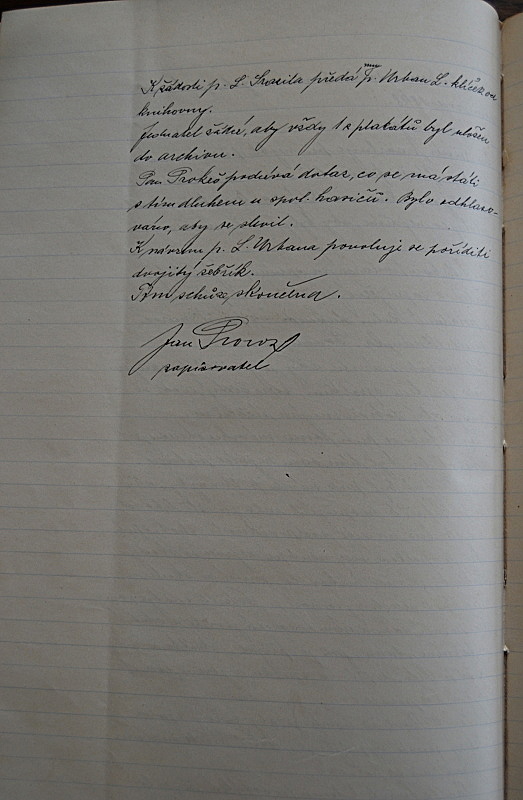 K žádosti p. L. Srazila předá mu p. Urban L. klíček od
knihovny.
Jednatel žádá, aby vždy 1 z plakátů byl uložen
do archivu.
Pan Prokeš podává dotaz, co se má státi
s tím dluhem u spol. hasičů. Bylo odhlaso-
váno, aby se slevil.
K návrhu p. L. Urbana povoluje se poříditi
dvojitý žebřík.
Tím schůze skončena.
Jan
zapisovatel